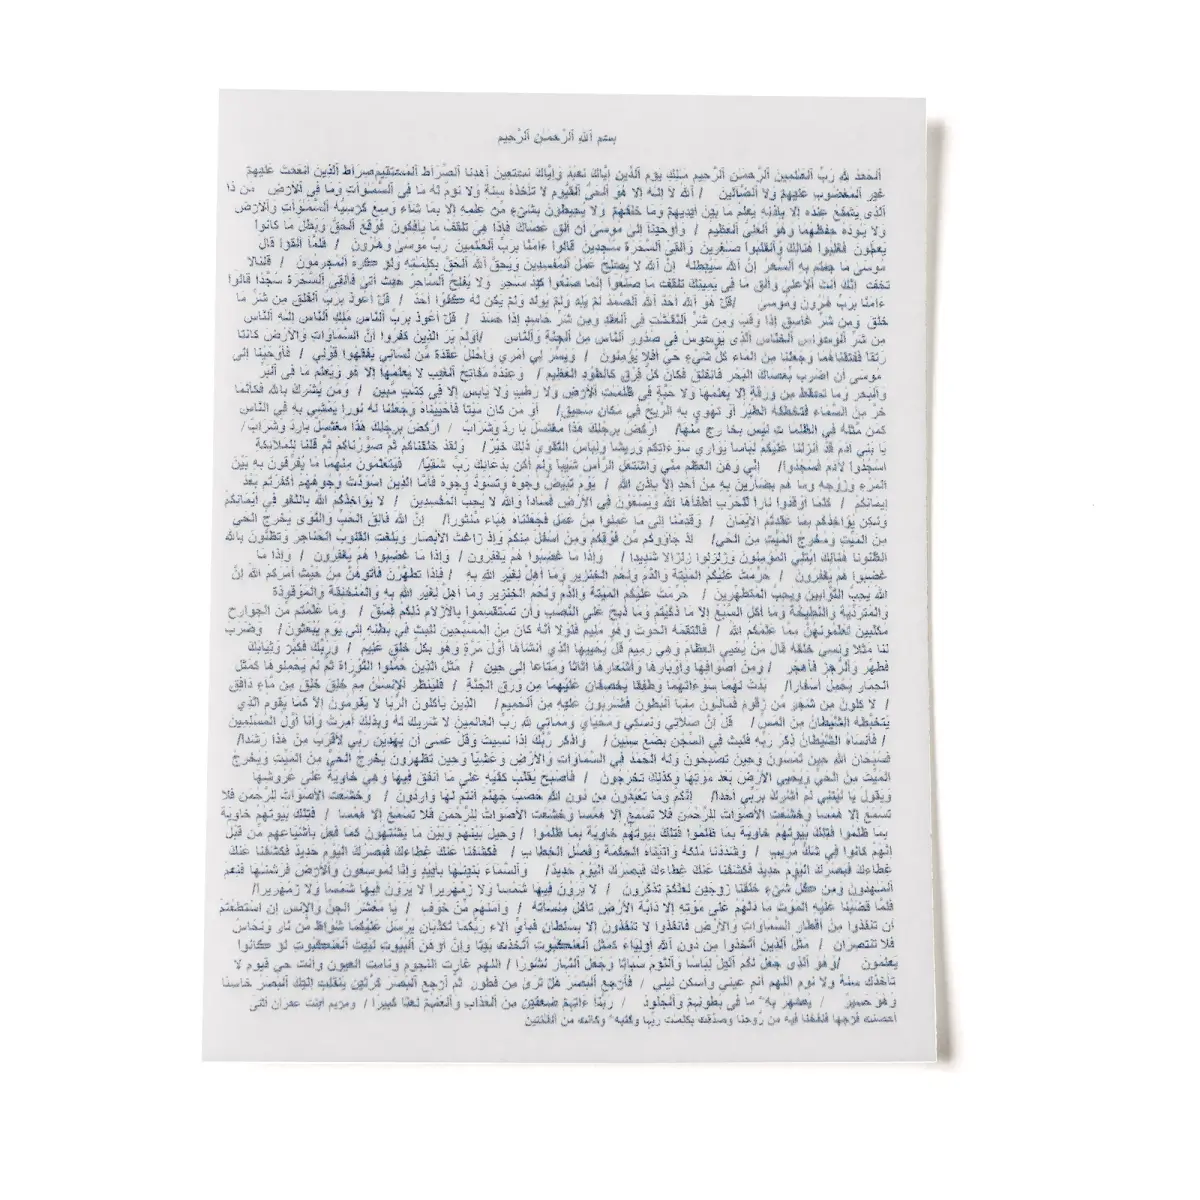 بسم الله الرحمن الرحيم
الحمد لله رب العلمين الرحمن الرحيم ملك يوم الدين إياك نعبد وإياك نستعين أهدنا الصراط المستقيم صراط الذين أنعمت عليهم
غير المغضوب عليهم ولا الضالين / الله لا إله إلا هو الحي القيوم لا تأخذه سنة ولا نوم له ما في السموات وما في الأرض من ذا
الذي يشفع عنده إلا بإذنه يعلم ما بين أيديهم وما خلفهم ولا يحيطون بشيء من علمه إلا بما شاء وسع كرسيه السموات والأرض
ولا يئوده حفظهما وهو العلي العظيم / وأوحينا إلى موسى أن ألق عصاك فإذا هي تلقف ما يأفكون فوقع الحق وبطل ما كانوا
يعملون فغلبوا هنالك وأنقلبوا صغرين وألقي السحرة سجدين قالوا ءامنا برب العلمين رب موسى وهرون / فلما ألقوا قال
موسى ما جئتم به السحر إن الله سيبطله إن الله لا يصلح عمل المفسدين ويحق الله الحق بكلمته ولو كره المجرمون / قلنا لا
تخف إنك أنت الأعلى وألق ما في يمينك تلقف ما صنعوا إنما صنعوا كيد سحر ولا يفلح الساحر حيث أتى فألقي السحرة سجدا قالوا
ءامنا برب هرون وموسى /قل هو الله أحد الله الصمد لم يلد ولم يولد ولم يكن له كفوا أحد / قل أعوذ برب الفلق من شر ما
خلق ومن شر غاسق إذا وقب ومن شر النفثت في العقد ومن شر حاسد إذا حسد / قل أعوذ برب الناس ملك الناس إله الناس
من شر الوسواس الخناس الذي يوسوس في صدور الناس من الجنة والناس /أولم ير الذين كفروا أن السماوات والأرض كانتا
رتقا ففتقناهما وجعلنا من الماء كل شيء حي أفلا يؤمنون / ويسر لي أمري واحلل عقدة من لساني يفقهوا قولي / فأوحينا إلى
موسى أن اضرب بعصاك البحر فانفلق فكان كل فرق كالطود العظيم / وعنده مفاتح الغيب لا يعلمها إلا هو ويعلم ما في البر
والبحر وما تسقط من ورقة إلا يعلمها ولا حبة في ظلمت الأرض ولا رطب ولا يابس إلا في كتب مبين / ومن يشرك بالله فكأنما
خر من السماء فتخطفه الطير أو تهوي به الريح في مكان سحيق/ أو من كان ميتا فأحييناه وجعلنا له نورا يمشي به في الناس
كمن مثله في الظلما ت ليس بخا رج منها/ اركض برجلك هذا مغتسل با رد وشراب / اركض برجلك هذا مغتسل بارد وشراب/
يا بني ادم قد أنزلنا عليكم لباسا يواري سوءاتكم وريشا ولباس التقوى ذلك خير/ ولقد خلقناكم ثم صورناكم ثم قلنا للملائكة
اسجدوا لآدم فسجدوا/ إني وهن العظم مني واشتعل الرأس شيبا ولم أكن بدعائك رب شقيا/ فيتعلمون منهما ما يفرقون به بين
المرء وزوجه وما هم بضارين به من أحد إلا بإذن الله / يوم تبيض وجوه وتسود وجوه فأما الذين اسودت وجوههم أكفرتم بعد
إيمانكم / كلما أوقدوا نارا للحرب أطفأها الله ويسعون في الأرض فسادا والله لا يحب المفسدين / لا يؤاخذكم الله باللغو في أيمانكم
ولكن يؤاخذكم بما عقدتم الأيمان / وقدمنا إلى ما عملوا من عمل فجعلناه هباء منثورا/ إن الله فالق الحب والنوى يخرج الحي
من الميت ومخرج الميت من الحي/ إذ جاؤوكم من فوقكم ومن أسفل منكم وإذ زاغت الأبصار وبلغت القلوب الحناجر وتظنون بالله
الظنونا هنالك ابتلي المؤمنون وزلزلوا زلزالا شديدا/ وإذا ما غضبوا هم يغفرون / وإذا ما غضبوا هم يغفرون / وإذا ما
غضبوا هم يغفرون / حرمت عليكم الميتة والدم ولحم الخنزير وما أهل لغير الله به / فإذا تطهرن فأتوهن من حيث أمركم الله إن
الله يحب التوابين ويحب المتطهرين / حرمت عليكم الميتة والدم ولحم الخنزير وما أهل لغير الله به والمنخنقة والموقوذة
والمتردية والنطيحة وما أكل السبع إلا ما ذكيتم وما ذبح على النصب وأن تستقسموا بالأزلام ذلكم فسق / وما علمتم من الجوارح
مكلبين تعلمونهن مما علمكم الله / فالتقمه الحوت وهو مليم فلولا أنه كان من المسبحين للبث في بطنه إلى يوم يبعثون/ وضرب
لنا مثلا ونسي خلقه قال من يحيي العظام وهي رميم قل يحييها الذي أنشأها أول مرة وهو بكل خلق عليم / وربك فكبر وثيابك
فطهر والرجز فأهجر / ومن أصوافها وأوبارها وأشعارها أثاثا ومتاعا إلى حين / مثل الذين حملوا التوراة ثم لم يحملوها كمثل
الحمار يحمل أسفارا/ بدت لهما سوءاتهما وطفقا يخصفان عليهما من ورق الجنة / فلينظر الإنسن مم خلق خلق من ماء دافق
/ لآكلون من شجر من زقوم فمالئون منها البطون فشربون عليه من الحميم/ الذين يأكلون الربا لا يقومون إلا كما يقوم الذي
يتخبطه الشيطان من المس/ قل إن صلاتي ونسكي ومحياي ومماتي لله رب العالمين لا شريك له وبذلك أمرت وأنا أول المسلمين
/ فأنساه الشيطان ذكر ربه فلبث في السجن بضع سنين/ واذكر ربك إذا نسيت وقل عسى أن يهدين ربي لأقرب من هذا رشدا/
فسبحان الله حين تمسون وحين تصبحون وله الحمد في السماوات والأرض وعشيا وحين تظهرون يخرج الحي من الميت ويخرج
الميت من الحي ويحيي الأرض بعد موتها وكذلك تخرجون / فأصبح يقلب كفيه على ما أنفق فيها وهي خاوية على عروشها
ويقول يا ليتني لم أشرك بربي أحدا/ إنكم وما تعبدون من دون الله حصب جهنم أنتم لها واردون / وخشعت الأصوات للرحمن فلا
تسمع إلا همسا وخشعت الأصوات للرحمن فلا تسمع إلا همسا وخشعت الأصوات للرحمن فلا تسمع إلا همسا / فتلك بيوتهم خاوية
بما ظلموا فتلك بيوتهم خاوية بما ظلموا فتلك بيوتهم خاوية بما ظلموا / وحيل بينهم وبين ما يشتهون كما فعل بأشياعهم من قبل
إنهم كانوا في شك مريب / وشددنا ملكه وآتيناه الحكمة وفصل الخطاب / فكشفنا عنك غطاءك فبصرك اليوم حديد فكشفنا عنك
غطاءك فبصرك اليوم حديد فكشفنا عنك غطاءك فبصرك اليوم حديد/ والسماء بنينها بأييد وإنا لموسعون والأرض فرشنها فنعم
المهدون ومن كل شيء خلقنا زوجين لعلكم تذكرون / لا يرون فيها شمسا ولا زمهريرا لا يرون فيها شمسا ولا زمهريرا/
فلما قضينا عليه الموت ما دلهم على موته إلا دابة الأرض تأكل منسأته / وآمنهم من خوف / يا معشر الجن والإنس إن استطعتم
أن تنفذوا من أقطار السماوات والأرض فانفذوا لا تنفذون إلا بسلطان فبأي آلاء ربكما تكذبان يرسل عليكما شواظ من نار ونحاس
فلا تنتصران / مثل الذين اتخذوا من دون الله أولياء كمثل العنكبوت اتخذت بيتا وإن أوهن البيوت لبيت العنكبوت لو كانوا
يعلمون /وهو الذي جعل لكم اليل لباسا والنوم سباتا وجعل النهار نشورا / اللهم غارت النجوم ونامت العيون وأنت حي قيوم لا
تأخذك سنة ولا نوم اللهم أنم عيني وأسكن ليلي / فأرجع البصر هل ترى من فطور ثم أرجع البصر كرتين ينقلب إليك البصر خاسئا
وهو حسير / يصهر به ما في بطونهم والجلود / ربنا ءاتهم ضعفين من العذاب والعنهم لعنا كبيرا / ومريم ابنت عمران التي
أحصنت فرجها فنفخنا فيه من روحنا وصدقت بكلمت ربها وكتبه وكانت من القنتين